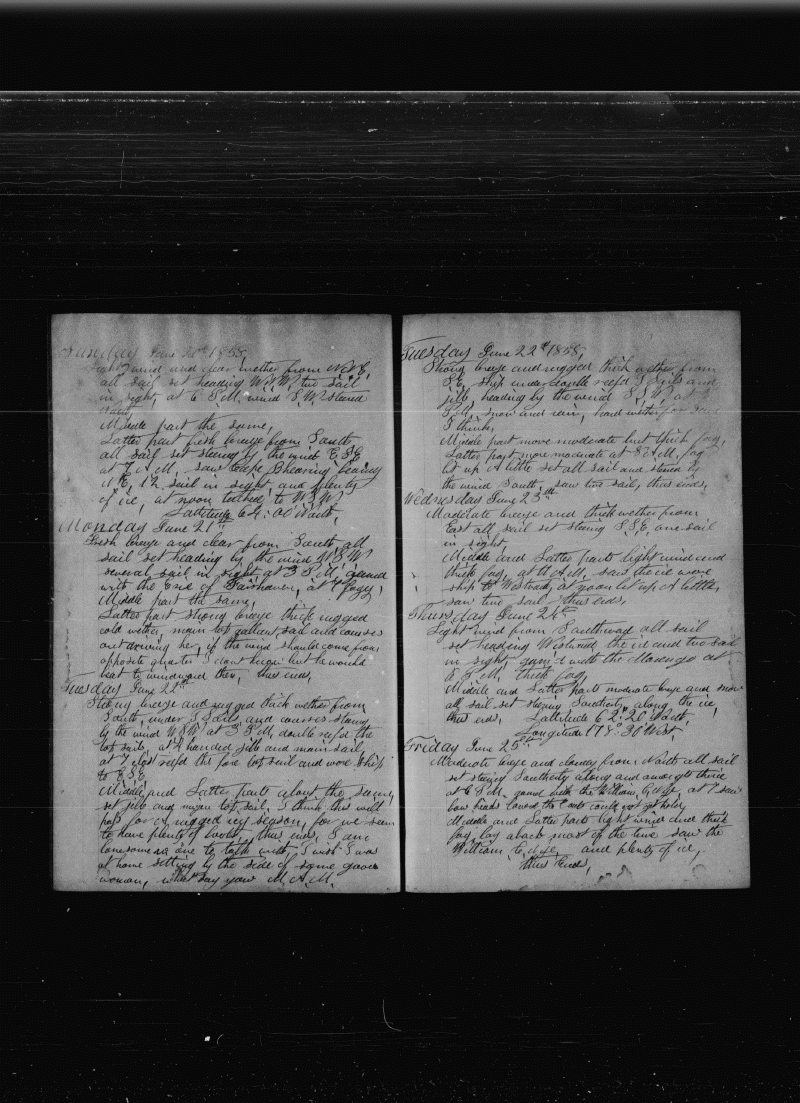 Sunday June 20th 1858,
Light wind and clear wether from N.N.E,
all sail set heading W.N.W, two sail
in sight, at 6 P.M, wind S.W. steered
Middle part the same,
Latter part fresh breeze from South
all sail set steering by the wind E.S.E
at 7 A.M, saw Cape Bhearing bearing
N.E, 12 sail in sight, and plenty
of ice, at noon tacked to W.S.W
Lattitude 64:00 North,
Monday June 21st
Fresh breeze and clear from South, all
sail set heading by the wind W.S.W
several sail in sight at 3 P.M, gamed
with the Eric of Fairhaven, at 7 foggy,
Middle part the same,
Latter part strong breeze thick rugged
cold wether, main top gallent sail and courses
out driving her, if the wind should come from
opposite quarter I dont know but he would
beat to windward then, thus ends,
Tuesday June 22nd
Strong breeze and rugged thick wether from
South, under T Sails, and courses steering
by the wind W.S.W at 3 P.M, double reefd the
top sails, at 4 handed jibb and main sail,
at 7 close reefd the fore top sail and wore ship
to E.S.E
Middle and Latter parts about the same,
set jibb and mizen top sail, I think this will
pass for a rugged icy season, for we seem
to have plenty of both, thus ends, I am
lonesome no one to talk with, I wish I was
at home setting by the side of some good
woman, what say you M.A.M.
Tuesday June 22d 1858,
Strong breeze and rugged thick wether from
S.E, ship under double reefd T Sails and
jibb, heading by the wind S.S.W, at 3
P.M, snow and rain, hard wether for
I think,
Middle part more moderate but thick fog,
Latter part more moderate at 8 A.M, fog
let up A little set all sail and steered by
the wind South, saw two sail, thus ends,
Wednesday June 23th
Moderate breeze and thick wether from
East all sail set steering S.S.E one sail
in sight
Middle and Latter parts light wind and
thick fog, at 11 A.M, saw the ice wore
ship to Westward, at noon let up A little,
saw two sail thus ends,
Thursday June 24th
Light wind from Southward all sail
set heading Westward the ice and two sail
in sight, gamd with the Marengo at
8 P.M, thick fog,
Middle and Latter parts moderate breeze and snow
all sail set steering Southerly along the ice,
thus ends, Lattitude 62:20 North,
Longitude 178° 30 West,
Friday June 25th
Moderate breeze and cloudy from North all sail
set steering Southerly along and amongst the ice
at 6 P.M. gamd with the William, at 7 saw
bow heads toward the East could not get
Middle and Latter parts light wind and thick
fog, lay aback most of the time saw the
William and plenty of ice,
thus Ends,